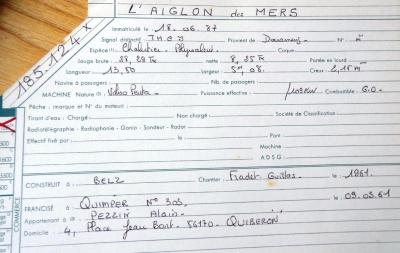 L'AIGLON des MERS
185.124 x
Immatriculé le 18.06.87
Signal distinctif THCJ Provient de Douarnenez N°
Espèce Chalutier Polyvalent Coque
Jauge brute : 28,28 Tx nette 8,35 Tx Portée en lourd
Longueur 13,50 Largeur 5m,08. Creux 2,15m
Nb. de passagers
MACHINE Nature Volvo Penta Puissance effective 109KW Combustible G.O.
Nb. de passagers
Pêche : marque et N° du moteur
Tirant d'eau : Chargé Non chargé Société de Classification
Radiotélégraphie - Radiophonie - Gonio - Sondeur - Radar
Effectif fixé par le Pont
Machine
A D S G
CONSTRUIT à BELZ Chantier le 1961.
FRANCISÉ à QUIMPER N° 303 le 09.05.61
Appartenant à Alain.
Domicile 4, Place Jean Bart. 56170 - QUIBERON
COMMERCE